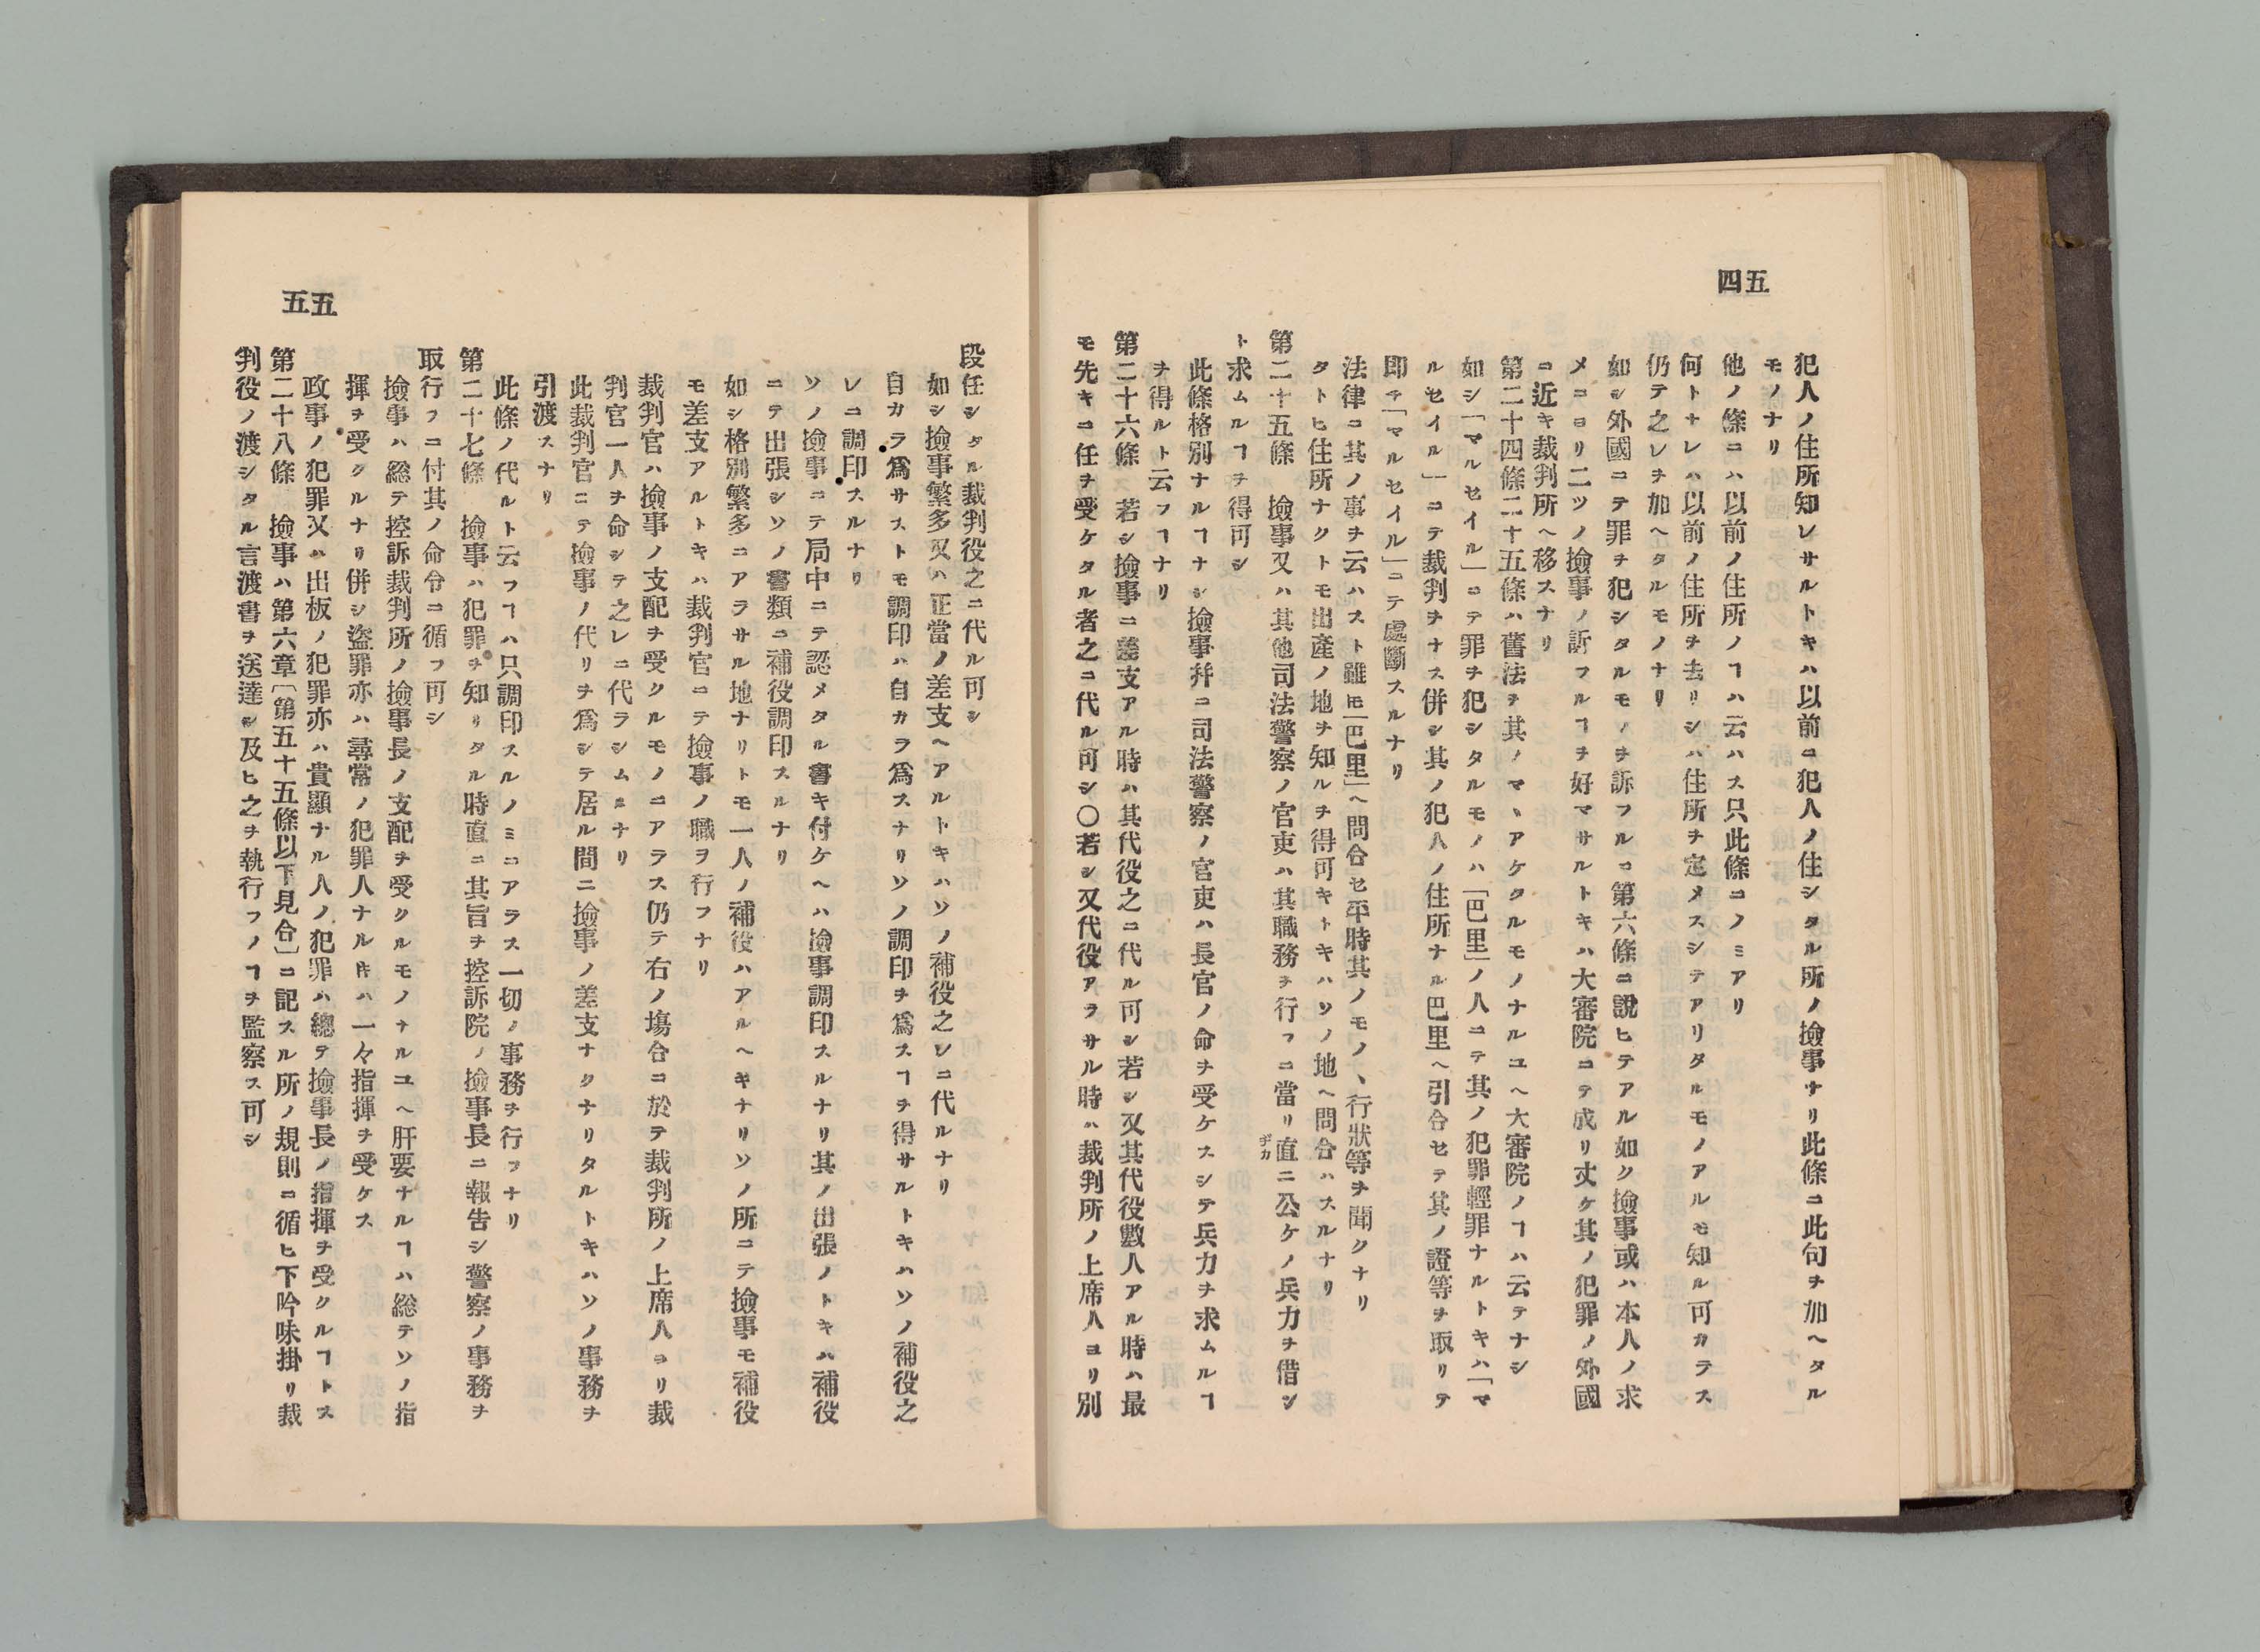 五四
犯人ノ住所知レサルトキハ以前ニ犯人ノ住シタル所ノ撿事ナリ此條ニ此句ヲ加ヘタル
モノナリ
他ノ條ニハ以前ノ住所ノヿハ云ハス只此條ニノミアリ
何トナレハ以前ノ住所ヲ去リシハ住所ヲ定メスシテアリタルモノアルモ知ル可カラス
仍テ之レヲ加ヘタルモノナリ
如シ外國ニテ罪ヲ犯シタルモノヲ訴フルニ第六條ニ說ヒテアル如ク撿事或ハ本人ノ求
メニヨリ二ツノ撿事ノ訴フルヿヲ好マサルトキハ大審院ニテ成リ丈ケ其ノ犯罪ノ外國
ニ近キ裁判所ヘ移スナリ
第二十四條二十五條ハ舊法ヲ其ノマヽアケタルモノナルユヘ大審院ノヿハ云テナシ
如シ「マルセイル」ニテ罪ヲ犯シタルモノハ「巴里」ノ人ニテ其ノ犯罪輕罪ナルトキハ「マ
ルセイル」ニテ裁判ヲナス併シ其ノ犯人ノ住所ナル巴里ヘ引合セテ其ノ證等ヲ取リテ
即テ「マルセイル」ニテ處斷スルナリ
法律ニ其ノ事ヲ云ハスト雖モ「巴里」ヘ問合セ平時其ノモノヽ行狀等ヲ聞クナリ
タトヒ住所ナクトモ出產ノ地ヲ知ルヲ得可キトキハソノ地ヘ問合ハスルナリ
第二十五條　撿事又ハ其他司法警察ノ官吏ハ其職務ヲ行フニ當リ直ニ公ケノ兵力ヲ借シ
ヂカ
ト求ムルヿヲ得可シ
此條格別ナルヿナシ撿事幷ニ司法警察ノ官吏ハ長官ノ命ヲ受ケスシテ兵力ヲ求ムルヿ
ヲ得ルト云フヿナリ
第二十六條　若シ撿事ニ差支アル時ハ其代役之ニ代ル可シ若シ又其代役數人アル時ハ最
モ先キニ任ヲ受ケタル者之ニ代ル可シ〇若シ又代役アラサル時ハ裁判所ノ上席人ヨリ別
五五
段任シタル裁判役之ニ代ル可シ
如シ撿事繁多又ハ正當ノ差支ヘアルトキハソノ補役之レニ代ルナリ
自カラ爲サストモ調印ハ自カラ爲スナリソノ調印ヲ爲スヿヲ得サルトキハソノ補役之
レニ調印スルナリ
ソノ撿事ニテ局中ニテ認メタル書キ付ケヘハ撿事調印スルナリ其ノ出張ノトキハ補役
ニテ出張シソノ書類ニ補役調印スルナリ
如シ格別繁多ニアラサル地ナリトモ一人ノ補役ハアルヘキナリソノ所ニテ撿事モ補役
モ差支アルトキハ裁判官ニテ撿事ノ職ヲ行フナリ
裁判官ハ撿事ノ支配ヲ受クルモノニアラス仍テ右ノ塲合ニ於テ裁判所ノ上席人ヨリ裁
判官一人ヲ命シテ之レニ代ラシムヿナリ
此裁判官ニテ撿事ノ代リヲ爲シテ居ル間ニ撿事ノ差支ナクナリタルトキハソノ事務ヲ
引渡スナリ
此條ノ代ルト云フヿハ只調印スルノミニアラス一切ノ事務ヲ行フナリ
第二十七條　撿事ハ犯罪ヲ知リタル時直ニ其旨ヲ控訴院ノ撿事長ニ報告シ警察ノ事務ヲ
取行フニ付其ノ命令ニ循フ可シ
撿事ハ総テ控訴裁判所ノ撿事長ノ支配ヲ受クルモノナルユヘ肝要ナルヿハ総テソノ指
揮ヲ受クルナリ併シ盜罪亦ハ尋常ノ犯罪人ナルキハ一々指揮ヲ受ケス
政事ノ犯罪又ハ出板ノ犯罪亦ハ貴顯ナル人ノ犯罪ハ總テ撿事長ノ指揮ヲ受クルヿトス
第二十八條　撿事ハ第六章〔第五十五條以下見合〕ニ記スル所ノ規則ニ循ヒ下吟味掛リ裁
判役ノ渡シタル言渡書ヲ送達シ及ヒ之ヲ執行フノヿヲ監察ス可シ